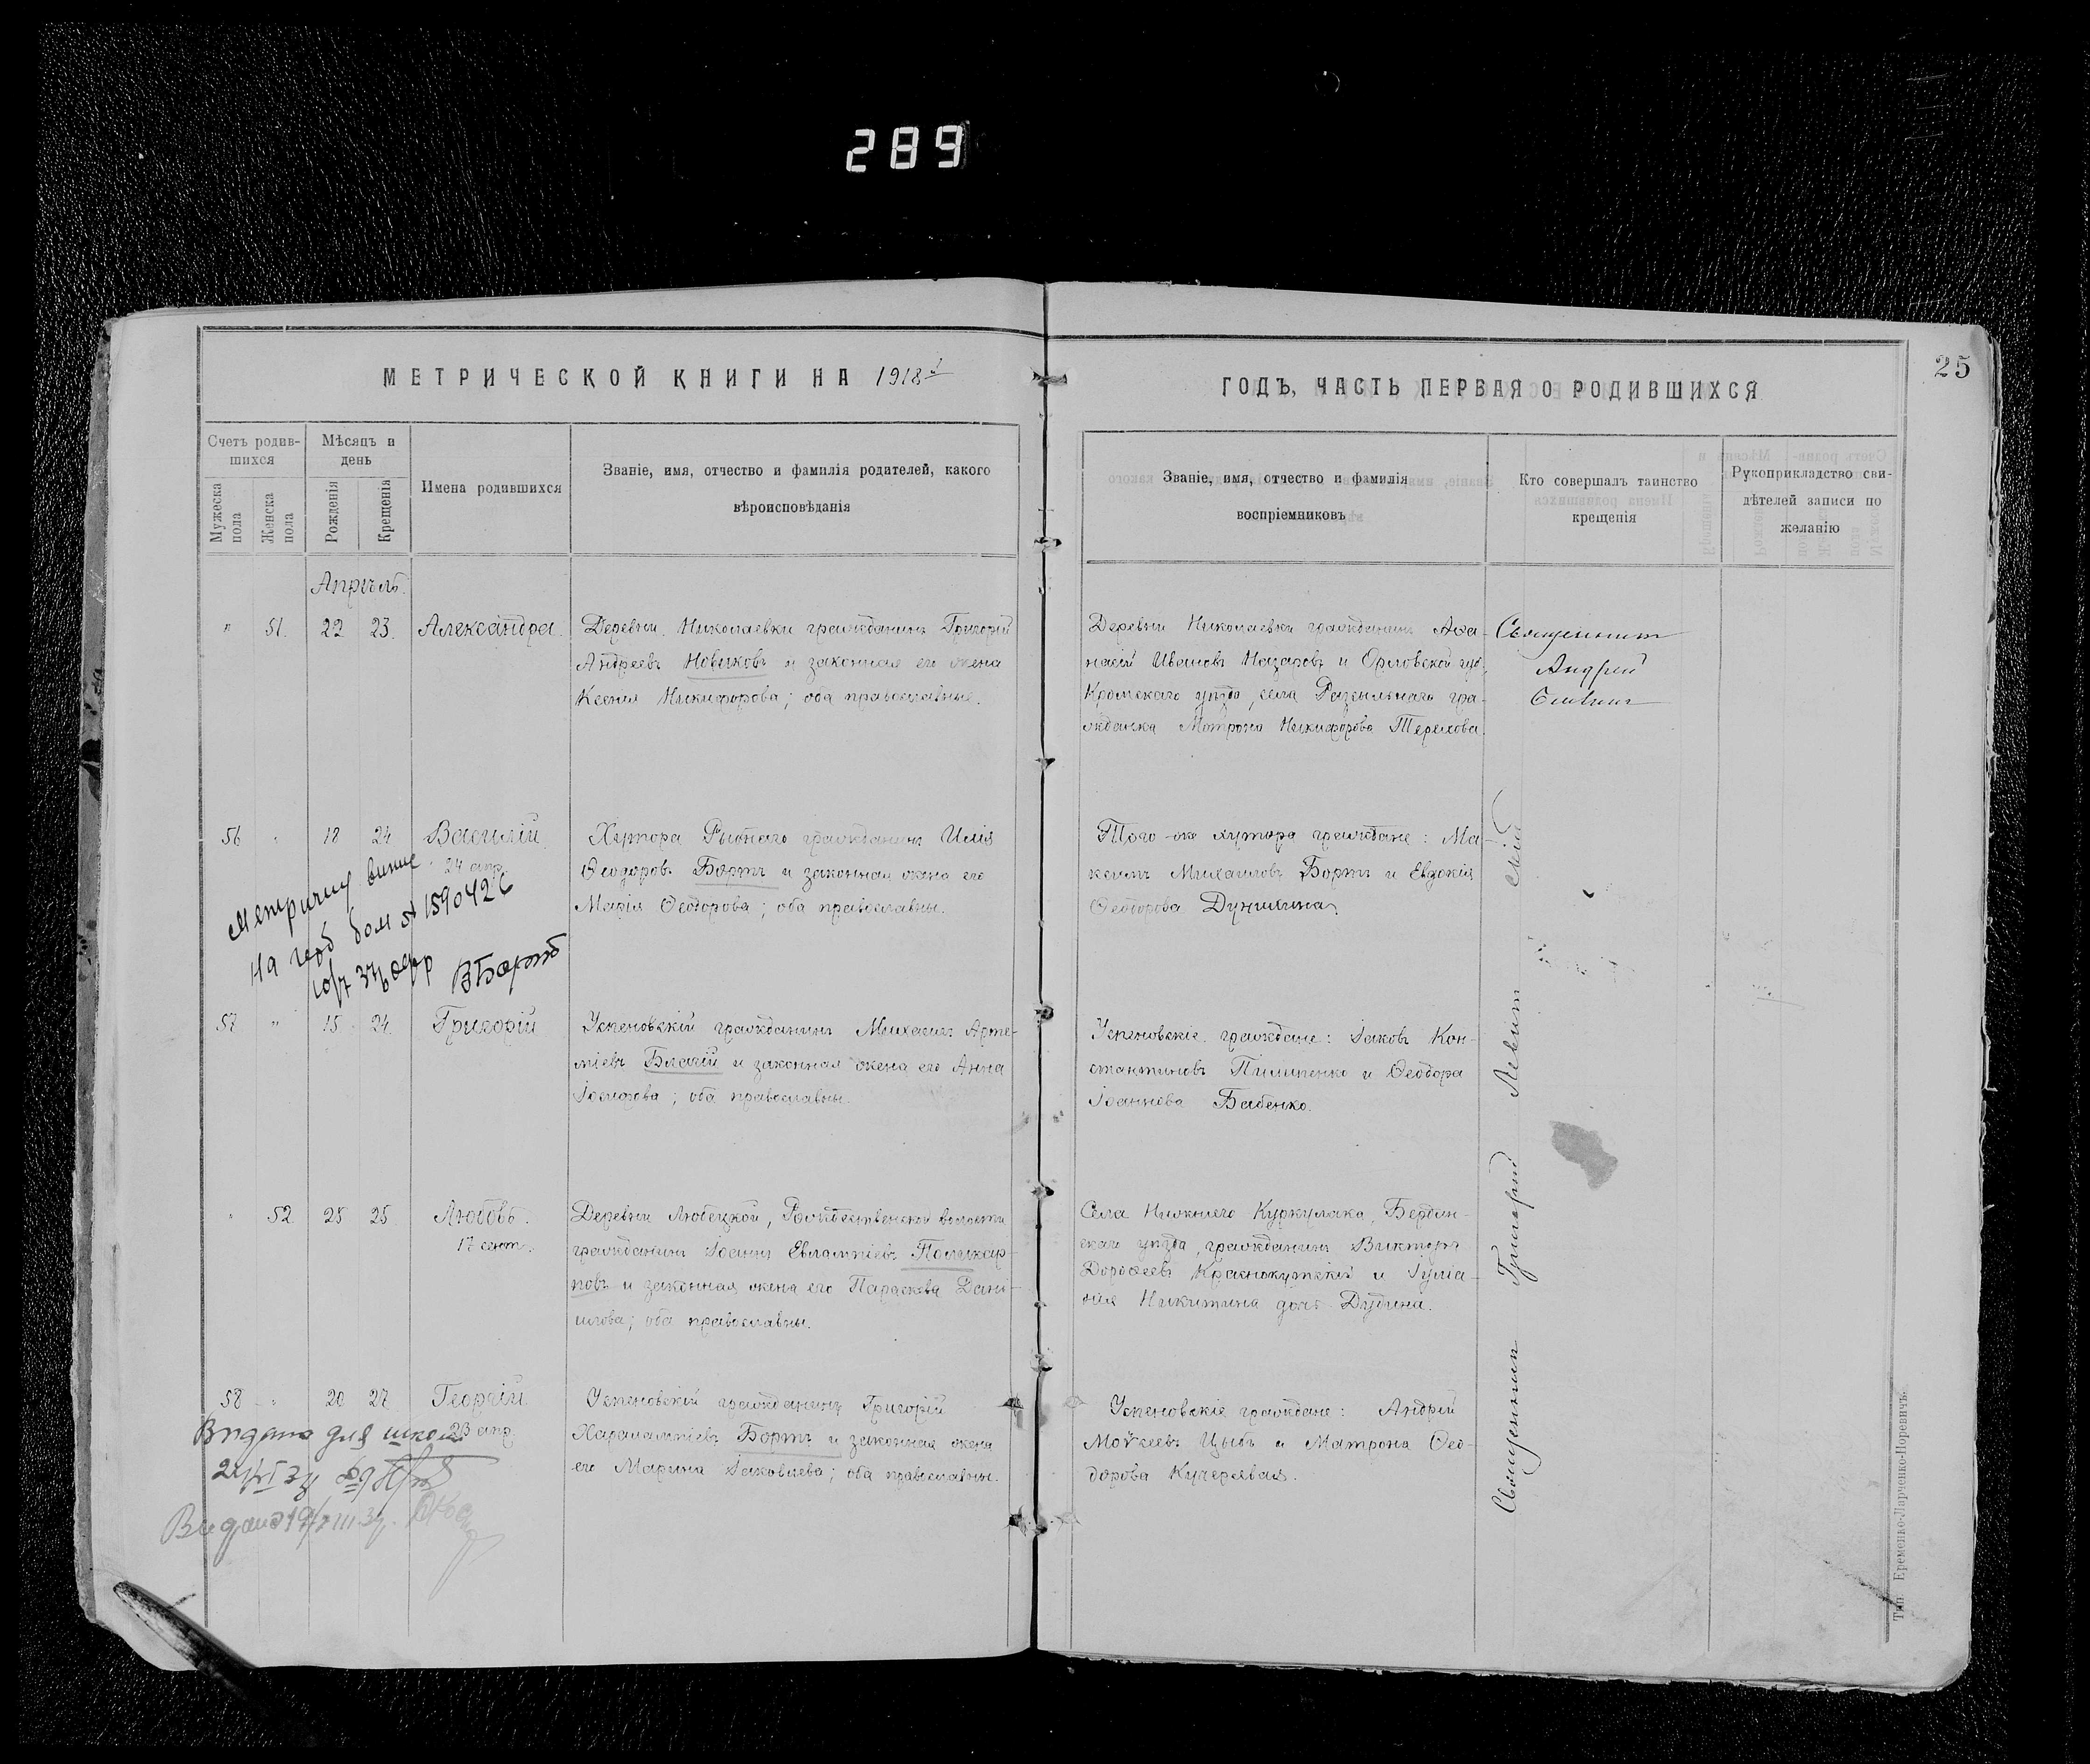 289
МЕТРИЧЕСКОЙ КНИГИ НА 1918й
ГОДЪ, ЧАСТЬ ПЕРВАЯ О РОДИВШИХСЯ
25
Счетъ родив-
шихся
Мужеска пола
Женска пола
Мѣсяцъ и
день
Рожденія
Крещенія
Имена родившихся
Званіе, имя, отчество и фамилія родителей, какого
вѣроисповѣданія
Званіе, имя, отчество и фамилія
воспріемниковъ
Кто совершалъ таинство
крещенія
Рукоприкладство сви-
дѣтелей записи по
желанію
Апрѣль.
" 51. 22 23. Александра.
Деревни Николаевки гражданинъ Григорій
Андреевъ Новиковъ и законная его жена
Ксенія Никифорова; оба православные.
Деревни Николаевки гражданинъ Аѳа-
насій Ивановъ Назаровъ и Орловской губ.
Кромскаго уѣзда, села гра-
жданка Матрона Никифорова Терехова.
Священникъ
Андрей
56 " 18 24 Василій
24 апр.
Хутора гражданинъ Илія
Ѳеодоровъ Бортъ и законная жена его
Марія Ѳеодорова; оба православны.
Того-же хутора граждане: Ма-
ксимъ Михаиловъ Бортъ и Евдокія
Ѳеодорова
Метричну
На 1590426
ВБортъ
57 " 15 24 Григорій
Успеновскій гражданинъ Михаилъ Арте-
міевъ Благій и законная жена его Анна
Іосифова; оба православны.
Успеновскіе граждане: Іаковъ Кон-
стантиновъ Пилипенко и Ѳеодора
Іоаннова Бабенко.
" 52 25 25 Любовь.
17 сент.
Деревни Любецкой, Рождественской волости
гражданинъ Іоаннъ Евлампіевъ Поликар-
повъ и законная жена его Параскева Дані-
илова; оба православны.
Села Нижняго Куркулака, Бердян-
скаго уѣзда, гражданинъ Викторъ
Дороѳеевъ Краснокутскій и Іуліа-
нія Никитина Дудина.
58 " 20 27 Георгій
23 апр.
Успеновскій гражданинъ Григорій
Харалампіевъ Бортъ и законная жена
его Марина Іаковлева; оба православны.
Успеновскіе граждане: Андрей
Моѵсеевъ Цыбъ и Матрона Ѳео-
дорова Кучерявая.
Видана для школи
Видана
Священникъ Григорій Левит
Тип. Еременко-Ларченко-Норевичъ.